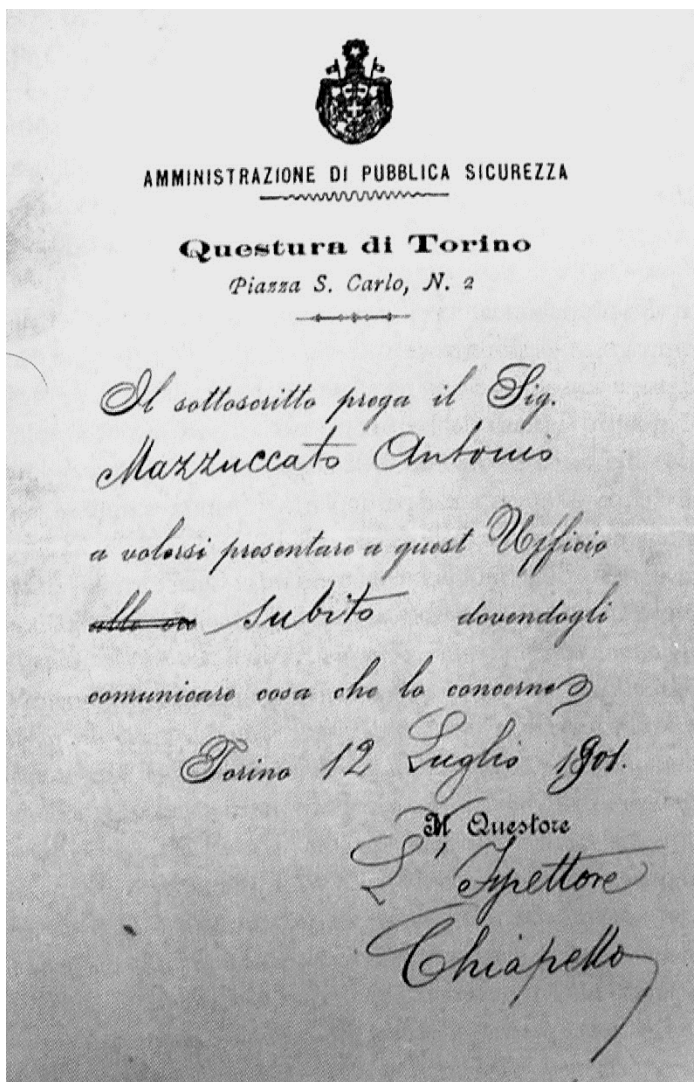 AMMINISTRAZIONE DI PUBBLICA SICUREZZA
Questura di Torino
Piazza S. Carlo, N. 2
Il sottoscritto prega il Sig.
Mazzuccato Antonio
a volersi presentare a quest Ufficio
alle ore subito dovendogli
comunicare cosa che lo concerne
Torino 12 Luglio 1901.
Il Questore
L'Ispettore
Chiapello